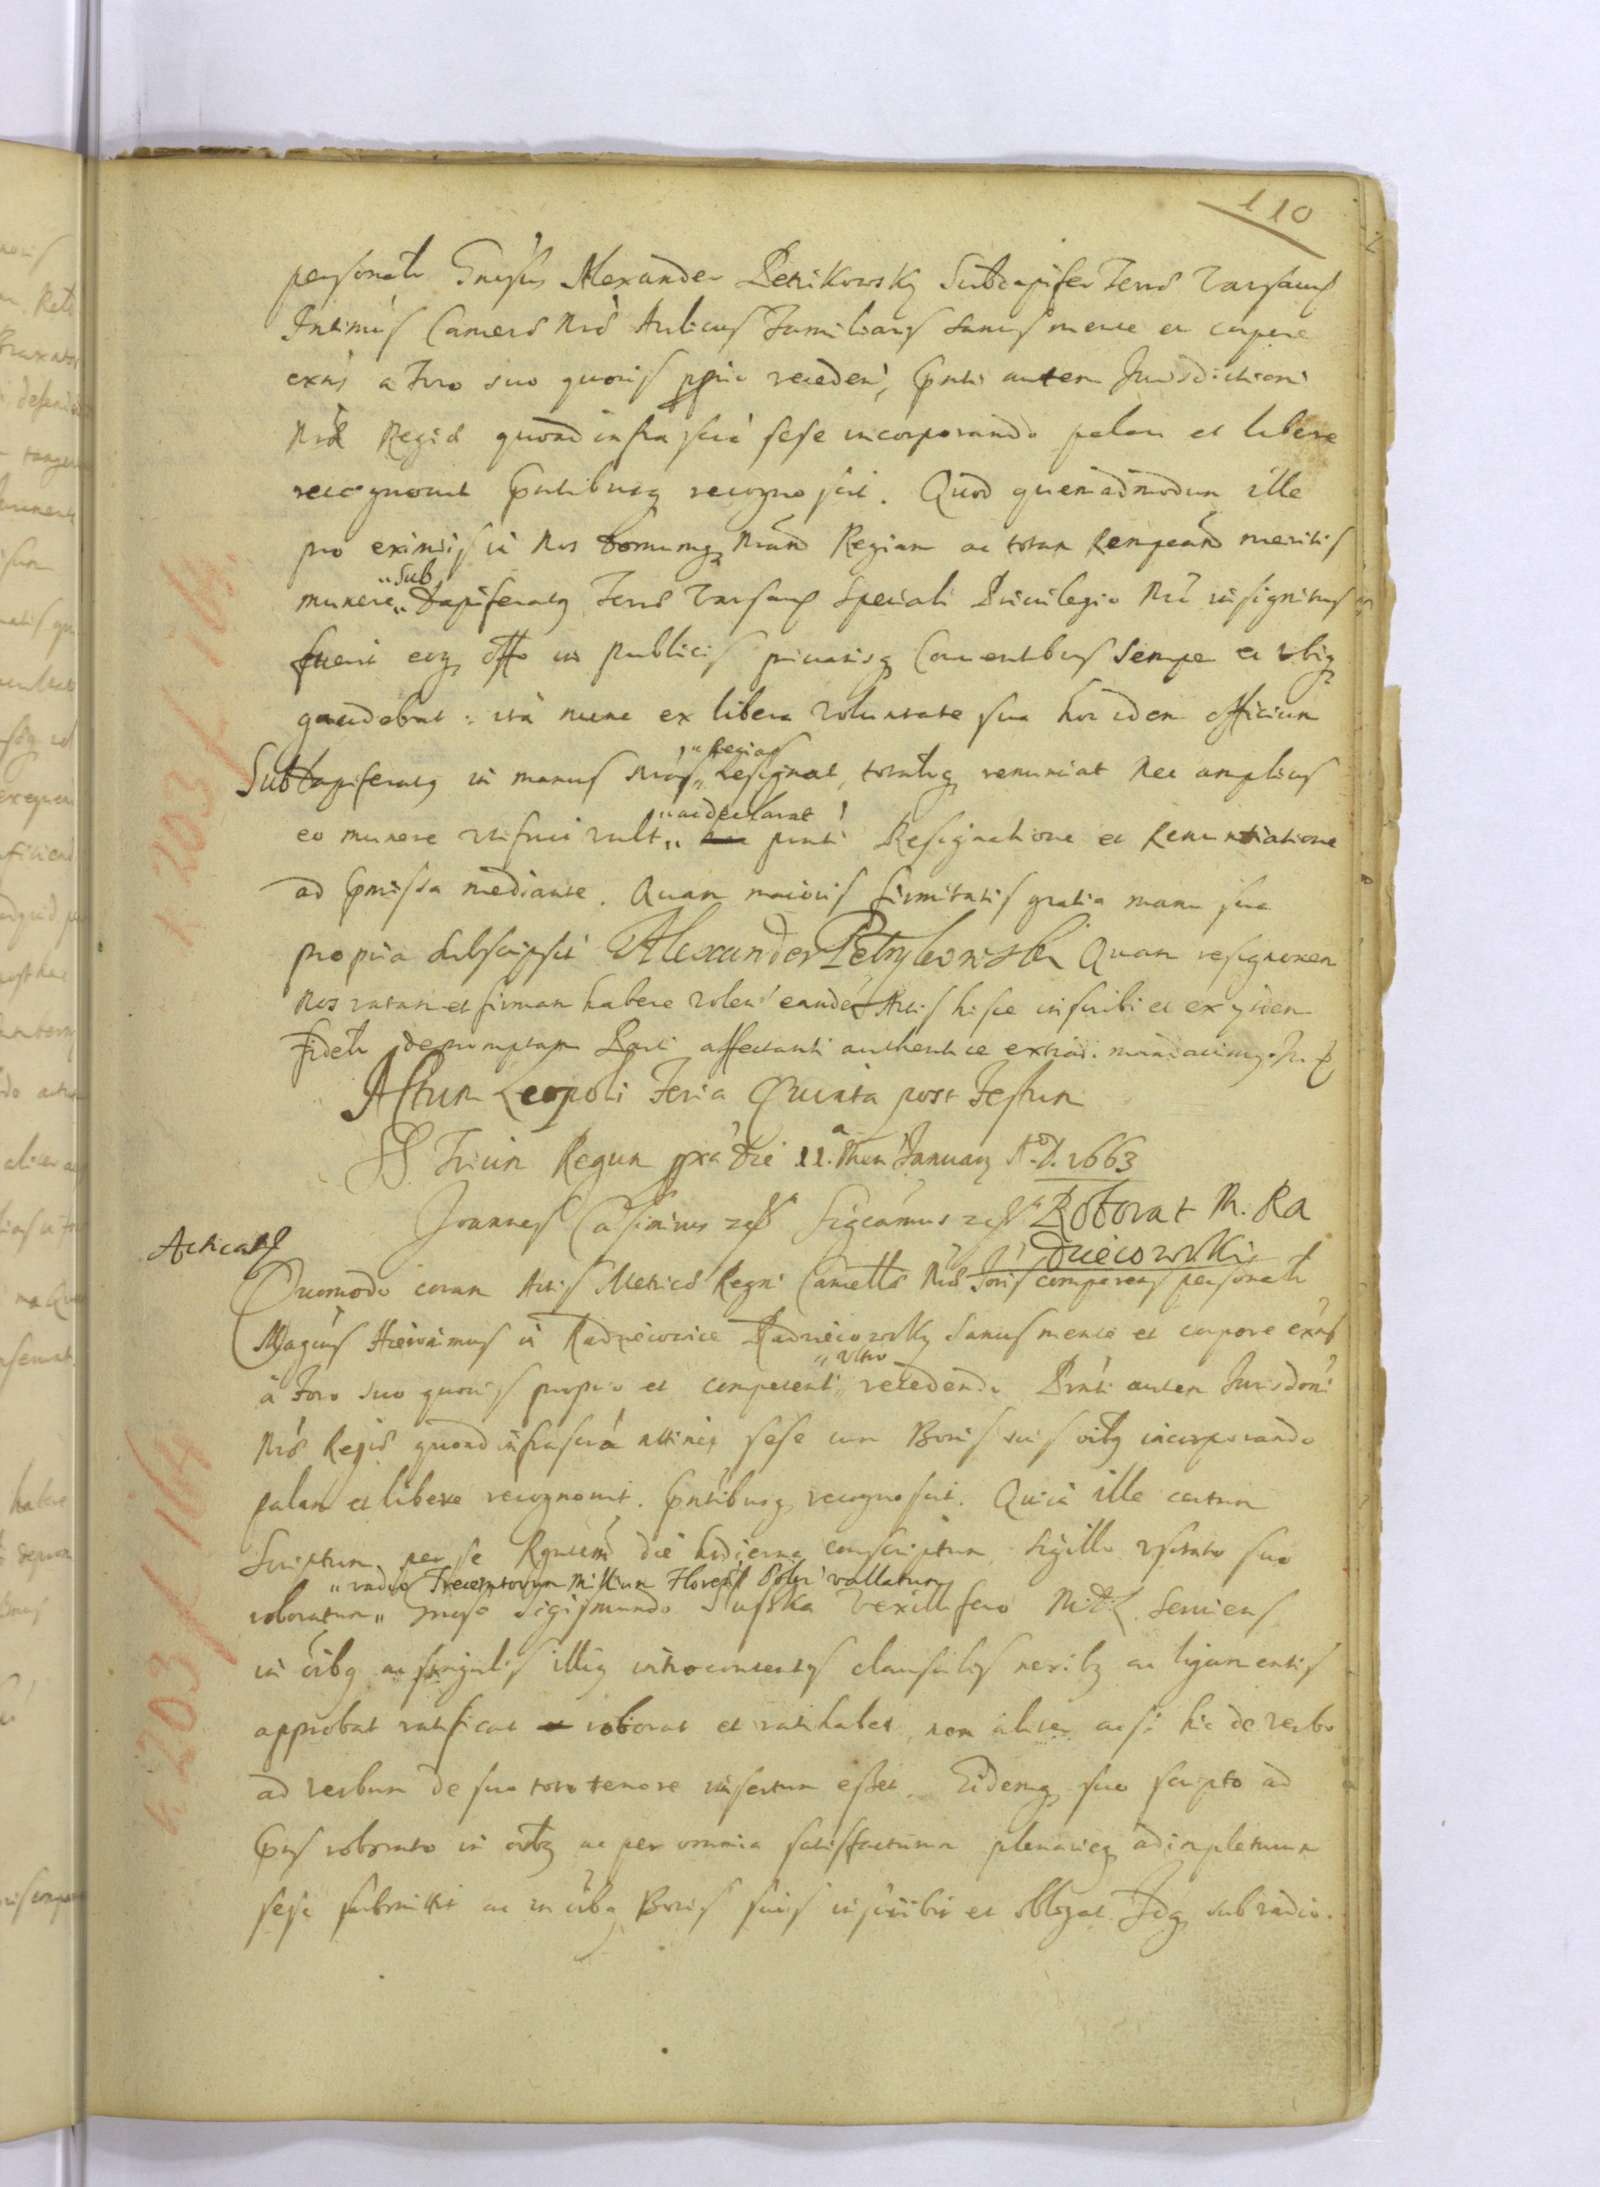 110
personalr Gnosus Alexander Petrikowsky Subdapifer Terrӕ Varsavs
Intimus Camerӕ Nrӕ Aulicus Familiaris sanus mente et corpore
exns a Foro suo quovis pprio recedens, Gpnti autem Jurisdictioni
Nrӕ Regiӕ quoad infrascra sese incorporando palam et libere
recognovit Gpntibusq recognoscit. Quod quemadmodum ille
pro eximijs in Nos Domumq Nram Regiam ac totam Rempcam meritis
munere "Sub" Dapiferatq Terrӕ Varsavs Speciali Privilegio Nro insignitus
fuerit eoq offo in publicis privatisq Conventibus semper et ubiq
gaudebat: ita nunc ex libera voluntate sua hoc idem officium
Subdapiferatq in manus Nras "Regias" Resignat, totalrq renunciat Nec amplius
eo munere utifrui vult "ac declarat" pnti Resignatione et Renuntiatione
ad Gpmissa mediante. Quam maioris firmitatis gratia manu sua
propria subscripsit Alexander Petrykowski Quam resignonem
Nos ratam et firmam habere volens eandem Actis hisce inscribi et ex ijsdem
Fidelr depromptam Parti affectanti authentice extradi mandavimq. In q
Actum Leopoli Feria Quinta post Festum
SS. Trium Regum pxa die 11.a Men Januarij A. D. 1663
Joannes Casimirus Rex Sigeamus Rex Roborat M. Ra
dziecowski
Acticatӕ
Quomodo coram Actis Metricӕ Regni Cancellӕ Nrӕ Joris comparens personalr
Magcus Hieronimus in Radziecowice Radziecowsky Sanus mente et corpore exns
a Foro suo quovis proprio et competenti "ultro" recedendo Pnti autem Jurisdoni
Nrӕ Regiӕ quoad infrascra attinet sese cum Bonis suis oibq incorporando
palam et libere recognovit. Gpntibusq recognoscit. Quia ille certum
Scriptum per se Rgncem die hodierna conscriptum, sigillo usitato suo
roboratum "vadio Trecentorum Millium Florens Polq vallatum" Gnoso Sigismundo Vexillifero M.D.L. serviens
in oibq ac singulis illiq introcontentis clausulis nexibq ac ligamentis
approbat ratificat roborat et ratihabet, non aliter ac si hic de verbo
ad verbum de suo toto tenore insertum esset. Eidemq suo scripto ad
Gpns roborato in oibq ac per omnia satisfacturum plenarieq adimpleturum
sese submittit ac in oibq Bonis suis inscribit et obligat Idq sub vadio.
k 203 f 164
k 203 f 164